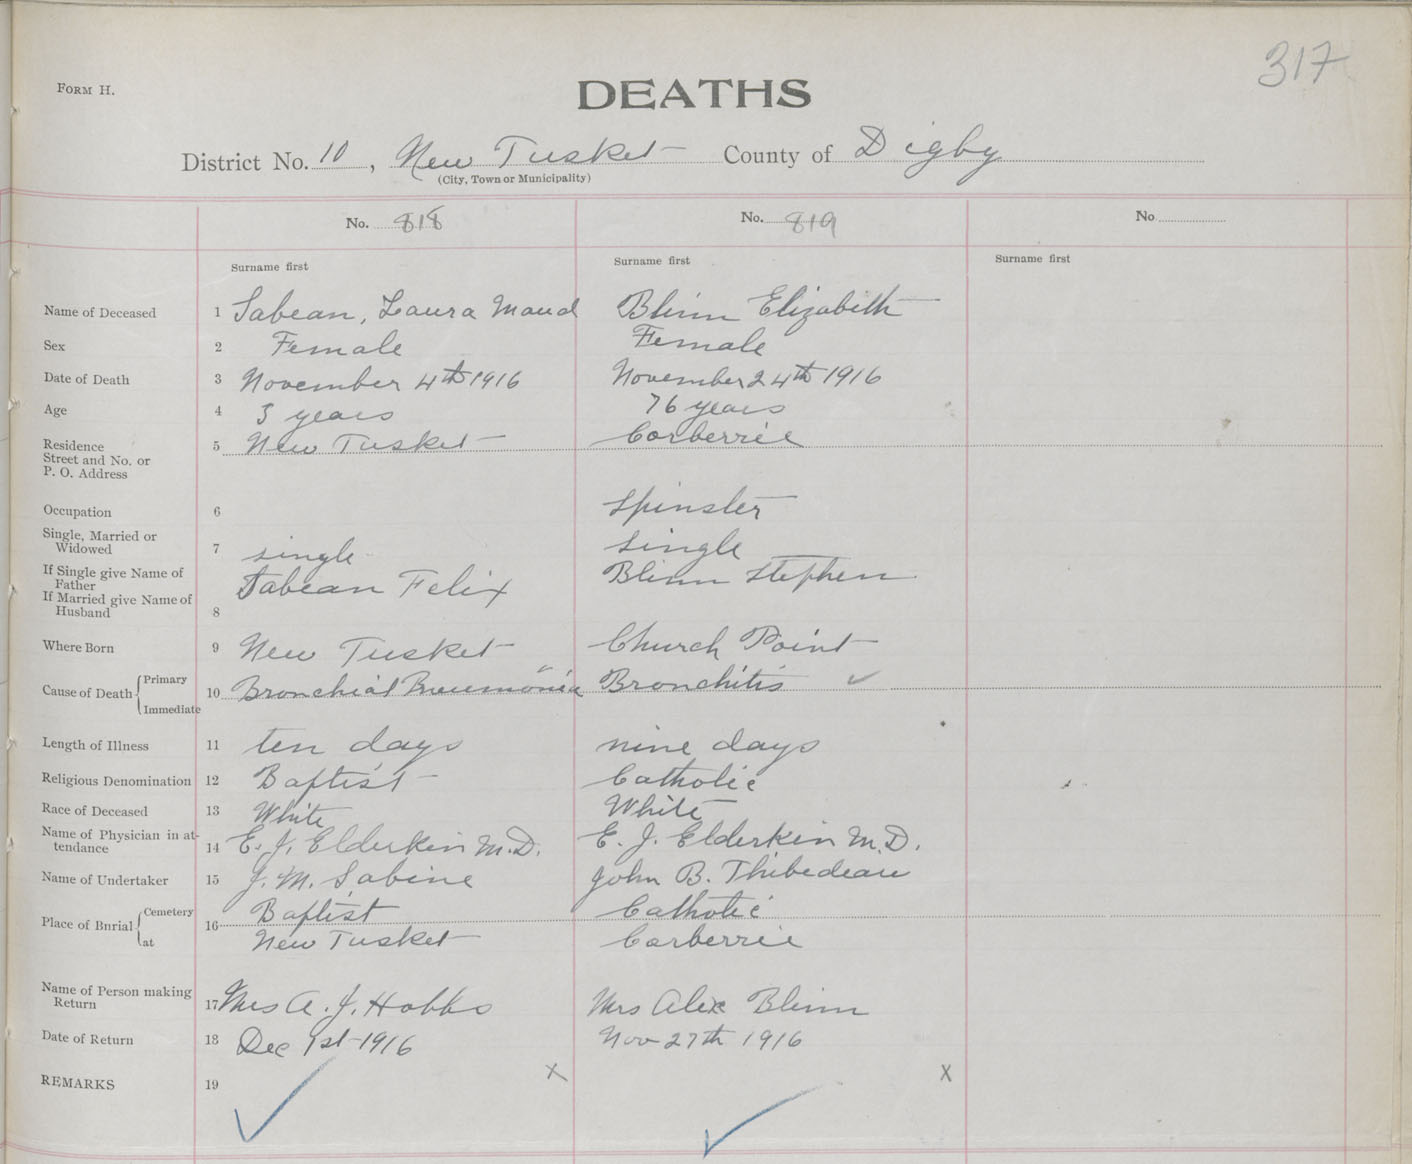 317
Form H.
DEATHS
District No. 10, New Tusket County of Digby
(City, Town or Municipality)
No. 818 No. 819 No
Surname first Surname first Surname first
Name of Deceased 1 Sabean, Laura Maud Blinn Elizabeth
Sex 2 Female Female
Date of Death 3 November 4th 1916 November 24th 1916
Age 4 3 years 76 years
Residence 5 New Tusket Corberrie
Street and No. or
P. O. Address
Occupation 6 Spinster
Single, Married or
Widowed 7 single single
If Single give Name of
Father Sabean Felix Blinn Stephen
If Married give Name of
Husband 8
Where Born 9 New Tusket Church Point
Primary
Cause of Death 10 Bronchial Pneumonia Bronchitis ✓
Immediate
Length of Illness 11 ten days nine days
Religious Denomination 12 Baptist Catholic
Race of Deceased 13 White White
Name of Physician in at-
tendance 14 E. J. Elderkin M.D. E. J. Elderkin M.D.
Name of Undertaker 15 J. M. Sabine John B. Thibedeau
Cemetery Baptist Catholic
Place of Burial 16
at New Tusket Corberrie
Name of Person making
Return 17 Mrs A. J. Hobbs Mrs Alex Blinn
Date of Return 18 Dec 1st 1916 Nov 27th 1916
REMARKS 19 x x
✓ ✓